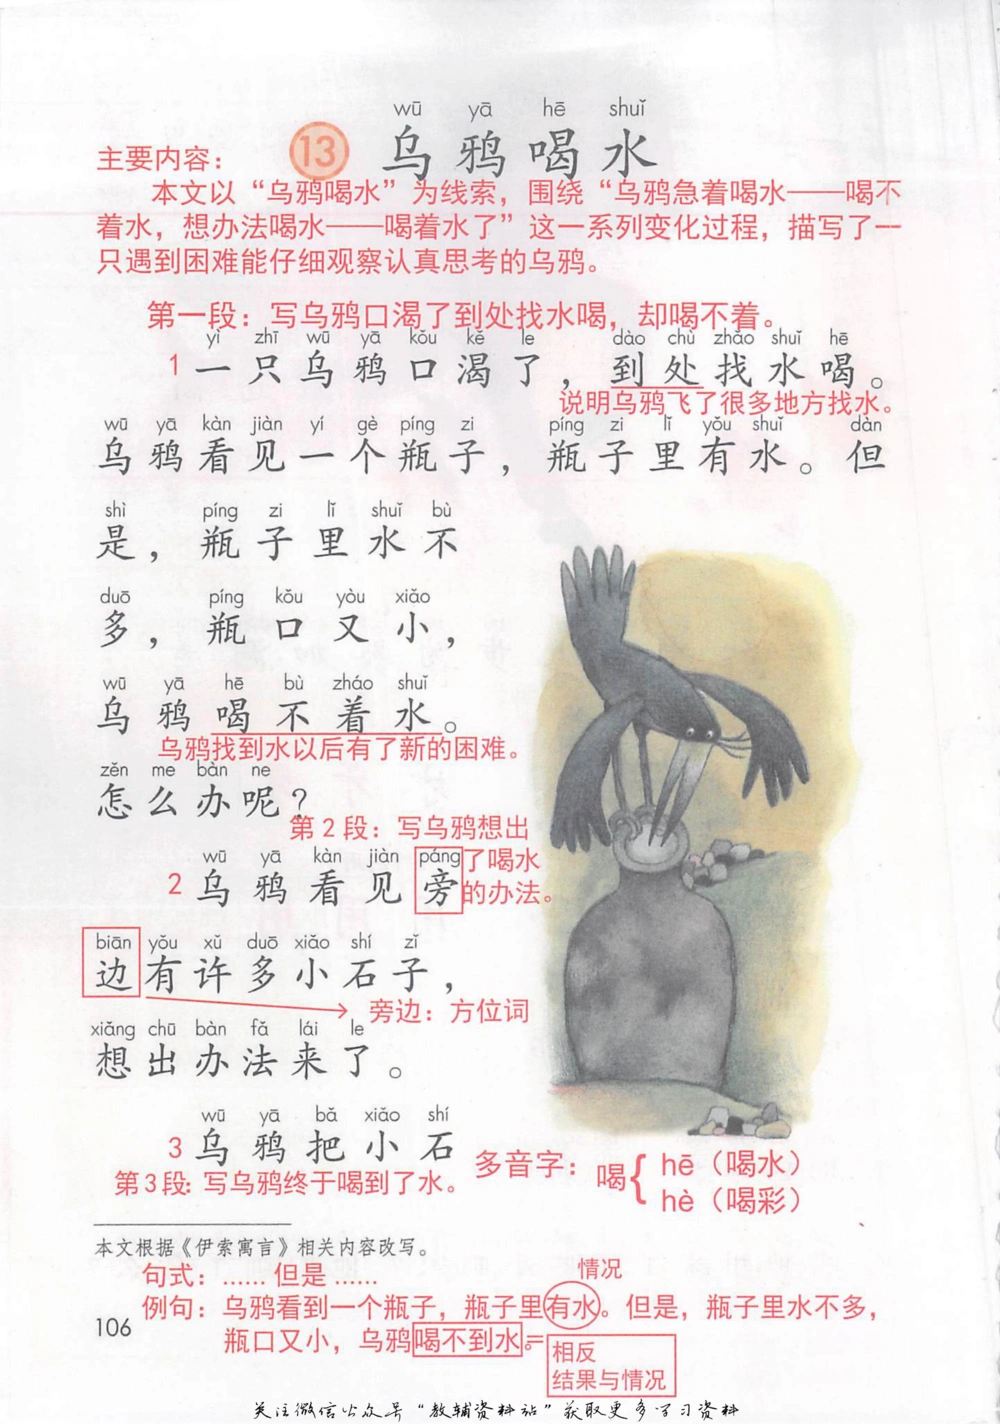 wū yā hē shuǐ
13 乌鸦喝水
主要内容：
本文以“乌鸦喝水”为线索，围绕“乌鸦急着喝水——喝不
着水，想办法喝水——喝着水了”这一系列变化过程，描写了一
只遇到困难能仔细观察认真思考的乌鸦。
第一段：写乌鸦口渴了到处找水喝，却喝不着。
yì zhī wū yā kǒu kě le dào chù zhǎo shuǐ hē
1 一只乌鸦口渴了，到处找水喝。
说明乌鸦飞了很多地方找水。
wū yā kàn jiàn yí gè píng zi píng zi lǐ yǒu shuǐ dàn
乌鸦看见一个瓶子，瓶子里有水。但
shì píng zi lǐ shuǐ bù
是，瓶子里水不
duō píng kǒu yòu xiǎo
多，瓶口又小，
wū yā hē bù zháo shuǐ
乌鸦喝不着水。
乌鸦找到水以后有了新的困难。
zěn me bàn ne
怎么办呢？
第2段：写乌鸦想出
了喝水
的办法。
wū yā kàn jiàn páng
2 乌鸦看见旁
biān yǒu xǔ duō xiǎo shí zǐ
边有许多小石子，
旁边：方位词
xiǎng chū bàn fǎ lái le
想出办法来了。
wū yā bǎ xiǎo shí
3 乌鸦把小石
第3段：写乌鸦终于喝到了水。
多音字：喝{ hē（喝水）
hè（喝彩）
本文根据《伊索寓言》相关内容改写。
句式：……但是……
情况
例句：乌鸦看到一个瓶子，瓶子里有水。但是，瓶子里水不多，
瓶口又小，乌鸦喝不到水。=
相反
结果与情况
106
关注微信公众号“教辅资料站”获取更多学习资料